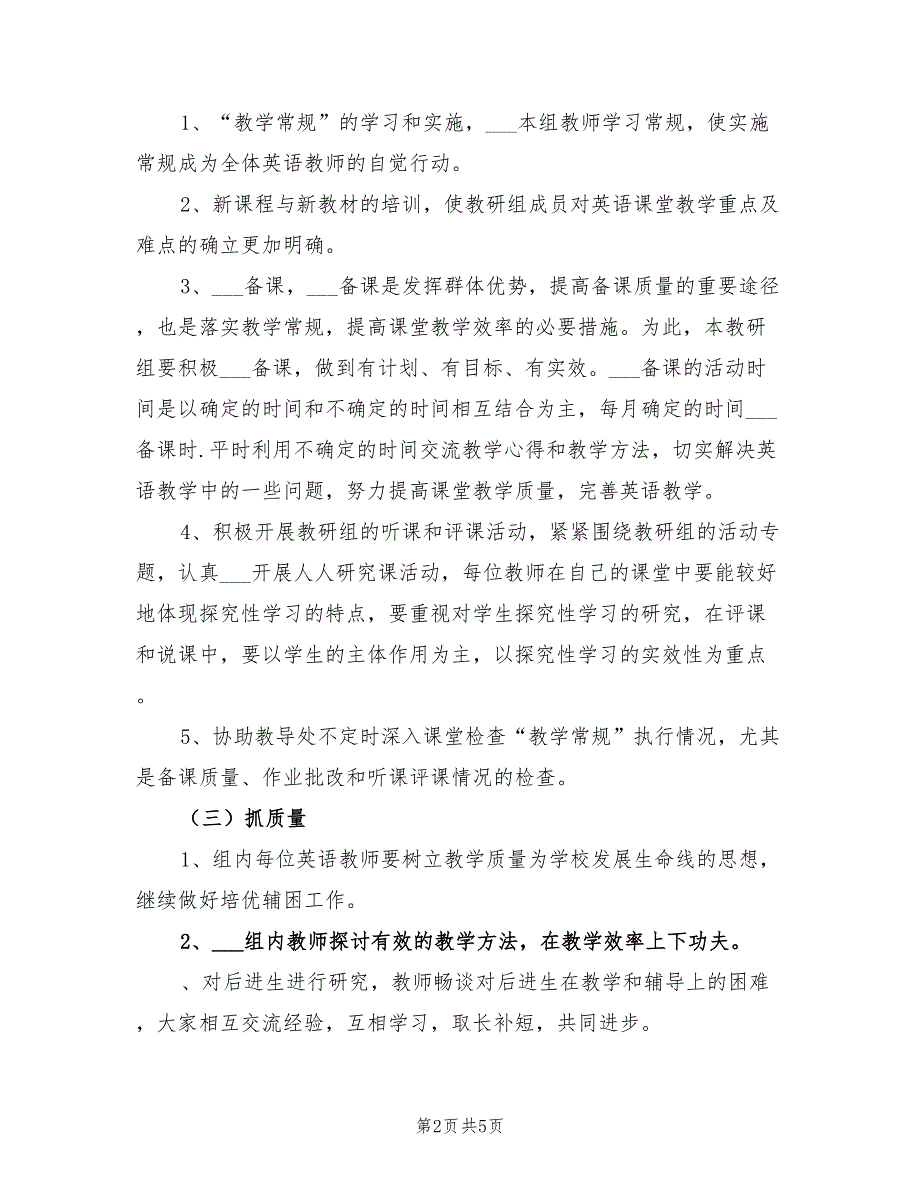 1、“教学常规”的学习和实施，___本组教师学习常规，使实施
常规成为全体英语教师的自觉行动。
2、新课程与新教材的培训，使教研组成员对英语课堂教学重点及
难点的确立更加明确。
3、___备课，___备课是发挥群体优势，提高备课质量的重要途径
，也是落实教学常规，提高课堂教学效率的必要措施。为此，本教研
组要积极___备课，做到有计划、有目标、有实效。___备课的活动时
间是以确定的时间和不确定的时间相互结合为主，每月确定的时间___
备课时.平时利用不确定的时间交流教学心得和教学方法，切实解决英
语教学中的一些问题，努力提高课堂教学质量，完善英语教学。
4、积极开展教研组的听课和评课活动，紧紧围绕教研组的活动专
题，认真___开展人人研究课活动，每位教师在自己的课堂中要能较好
地体现探究性学习的特点，要重视对学生探究性学习的研究，在评课
和说课中，要以学生的主体作用为主，以探究性学习的实效性为重点
。
5、协助教导处不定时深入课堂检查“教学常规”执行情况，尤其
是备课质量、作业批改和听课评课情况的检查。
（三）抓质量
1、组内每位英语教师要树立教学质量为学校发展生命线的思想，
继续做好培优辅困工作。
2、___组内教师探讨有效的教学方法，在教学效率上下功夫。
、对后进生进行研究，教师畅谈对后进生在教学和辅导上的困难
，大家相互交流经验，互相学习，取长补短，共同进步。
第2页共5页